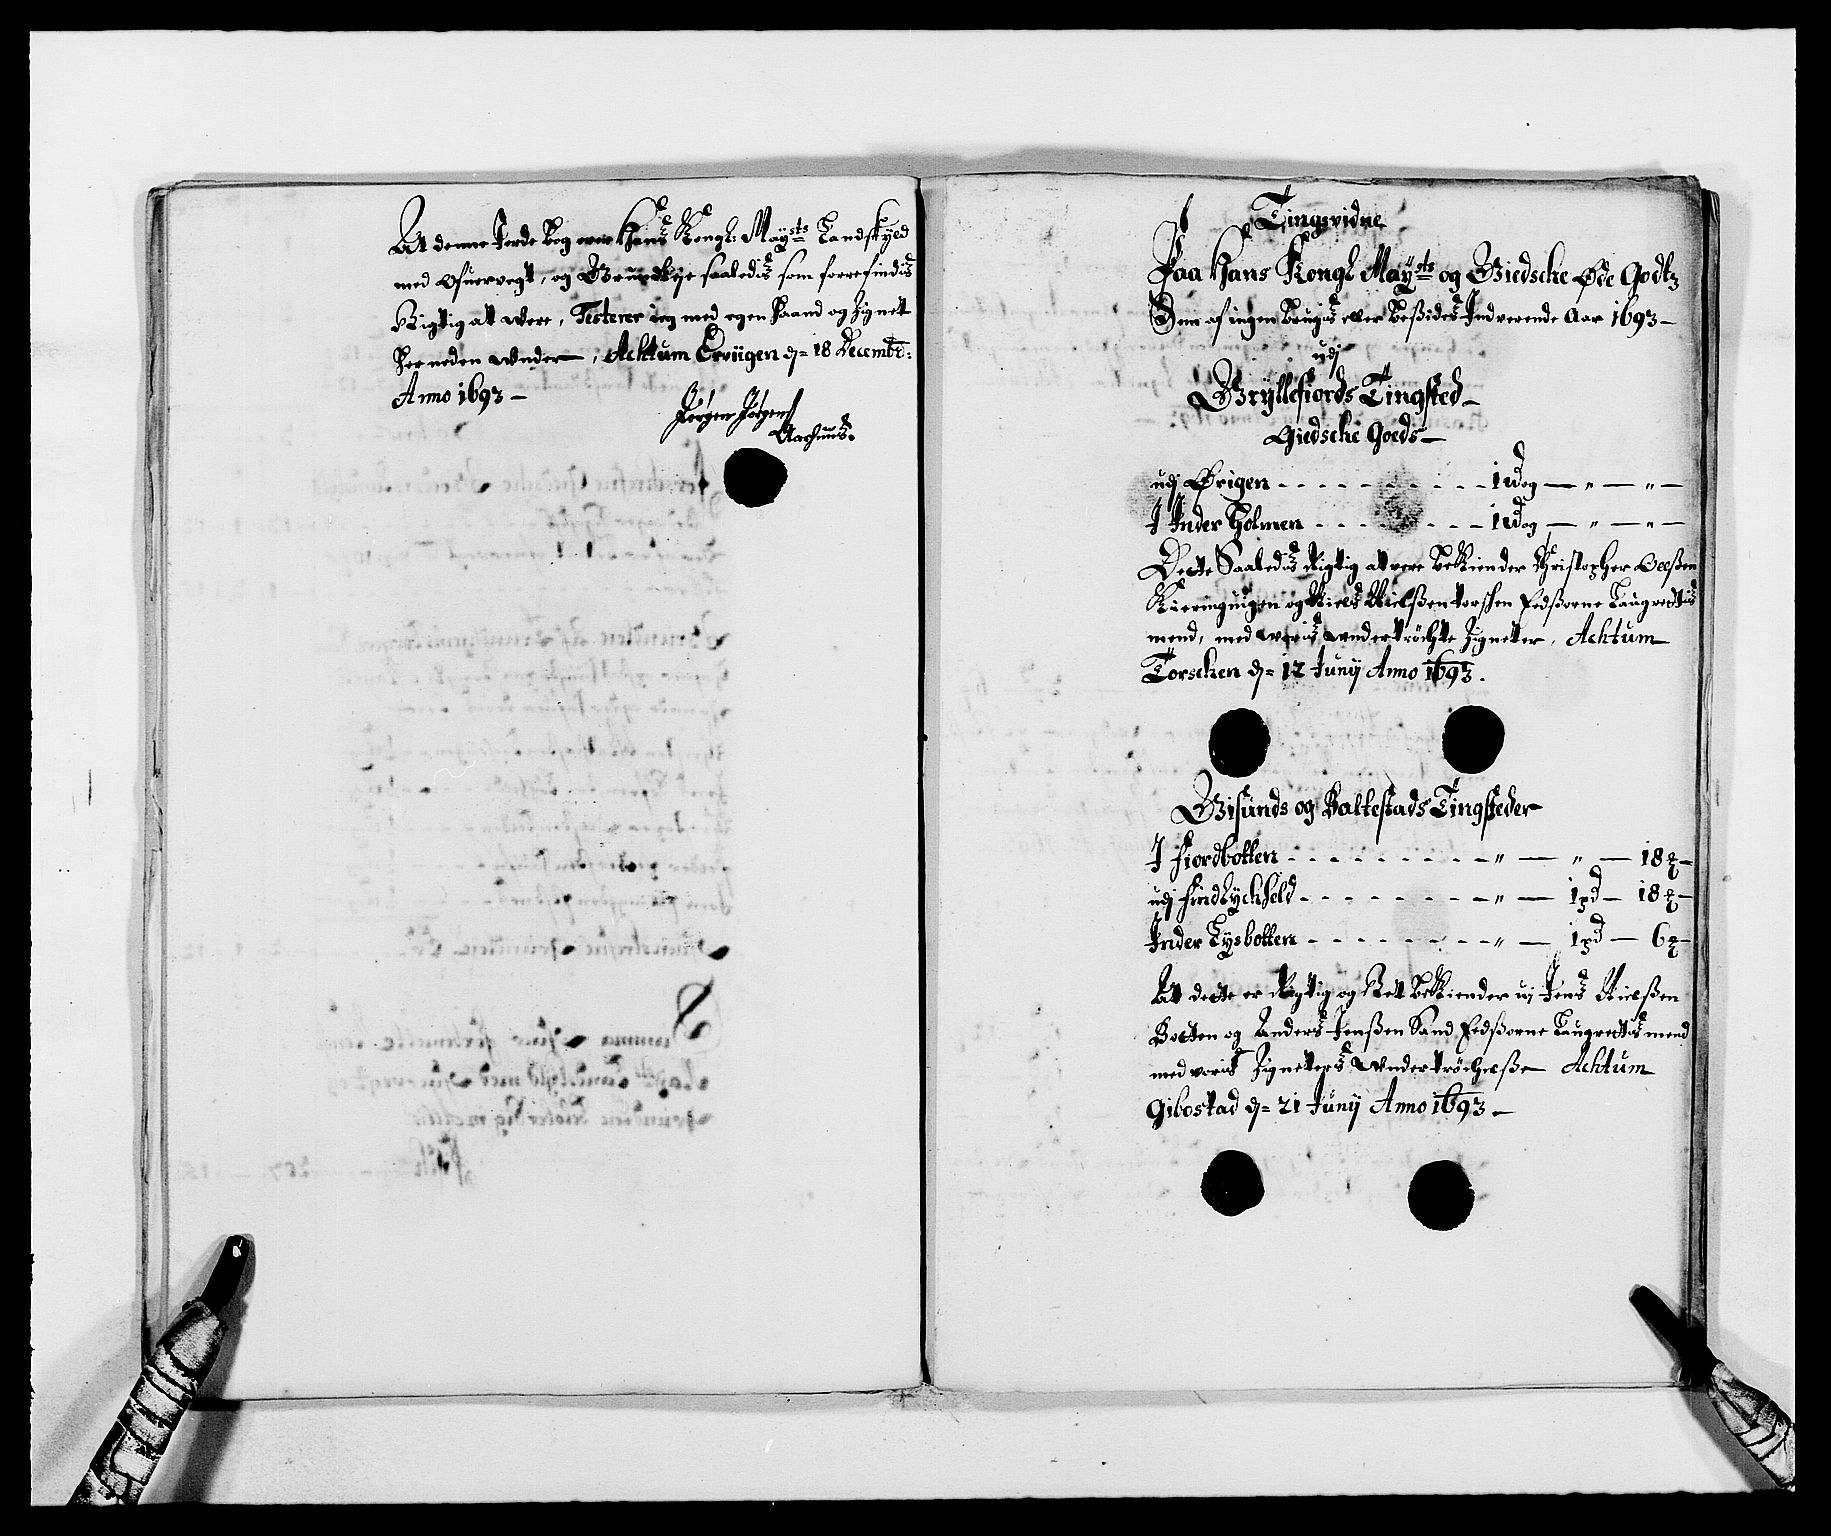 At denne Jorde bog over Hans Kongl: Maysts Landskyld
med ofuervegt, og Grundleje saaledis som forrefindis
Rigtig at were, Testerer ieg med egen Haand og Zignet
her neden under, Achtum Ervügen dn 18 Decembr:
Anno 1693 -
Jørgen Jørgens
Aarhuus.
Tingsvidne
Paa Hans Kongl Maysts og Giedsche Øde Godtz
Som af ingen brugis eller beßides Indverende Aar 1693 -
udj
Gryllefiords Tingsted -
Giedsche Goeds -
udj Ørigen - - - - - - - - - - 1 Wog - " - " -
I Inder Holmen - - - - - - - - 1 Wog - " - " -
Dette Saaledis Rigtig at vere bekiender Christopher Oelßen
og Niels Nielßen torschen Edßorne Laugrettis
mend, med woris undertröchte Zigneter, Achtum
Torschen dn 12 Junij Anno 1693.
Gisunds og Baltestads Tingsteder
I Fiordbotten - - - - - - - - - " - " - 18 -
udj Findlychheld - - - - - - - - " - 1 pd - 18 -
Inder Lysbotten - - - - - - - - " - 1 pd - 6 -
At dette er Rigtig og Ret bekiender wj Jens Nielßen
Botten og Anders Jenßen Sand Edßorne Laugrettis mend
med woris Zigneters undertröchelße Achtum
Gibostad dn 21 Junij Anno 1693 -